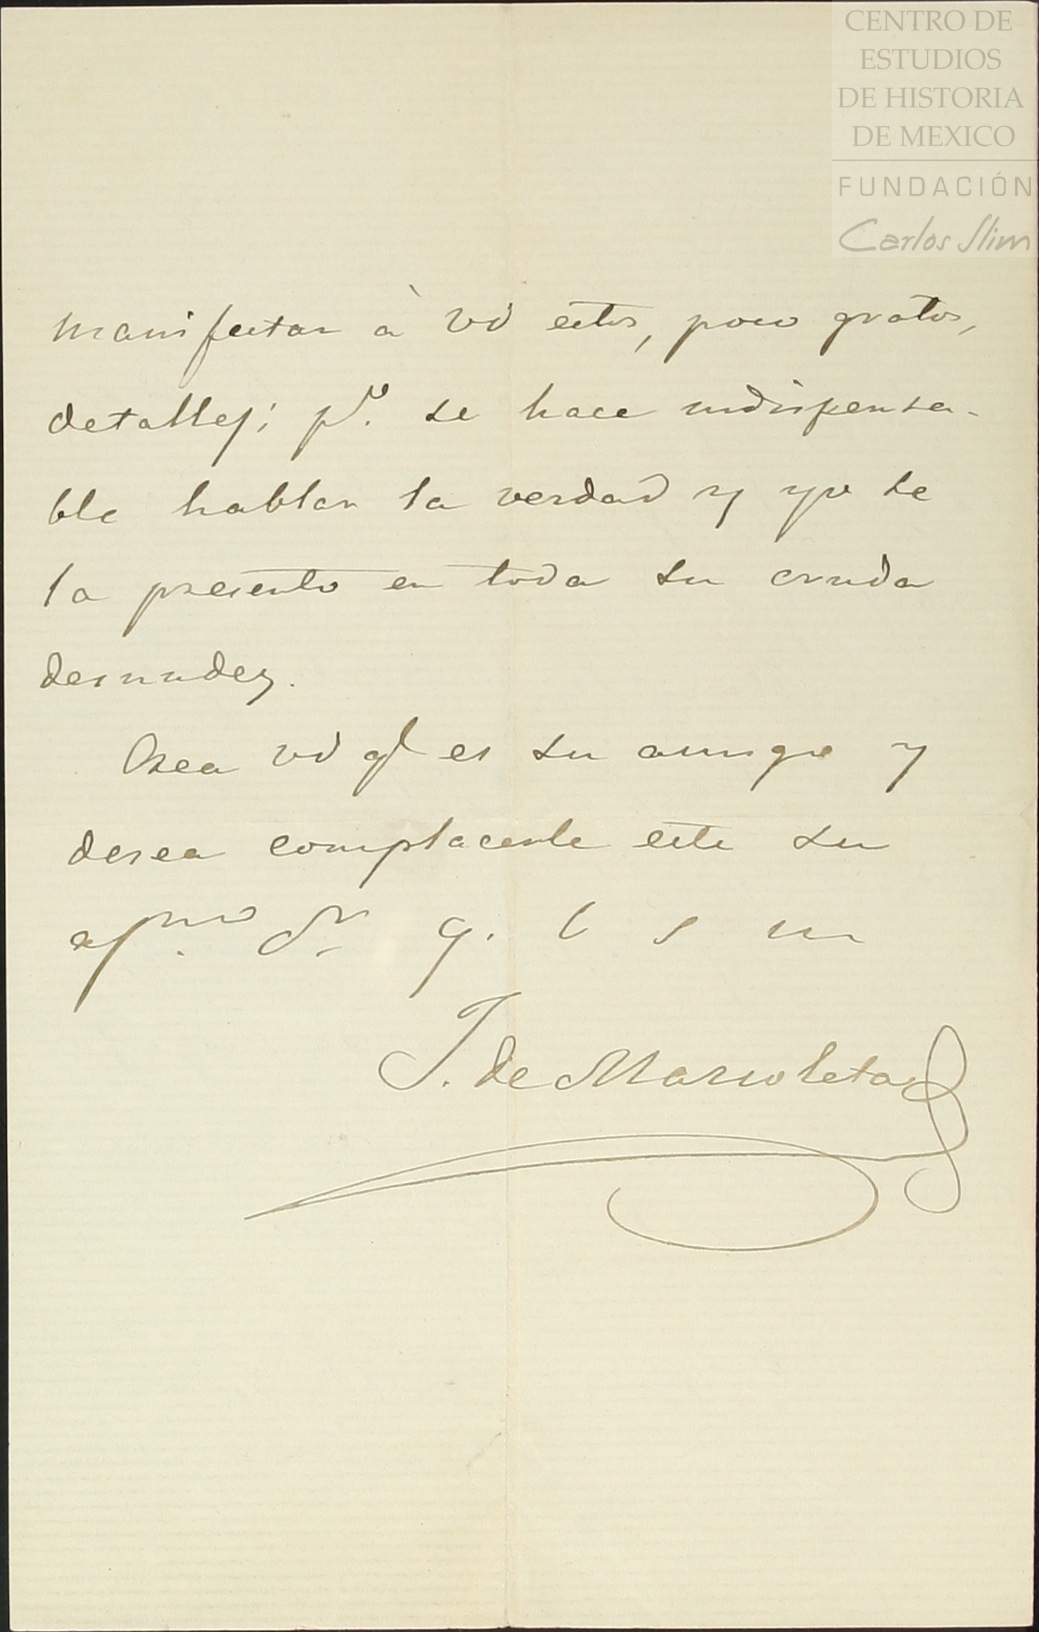 CENTRO DE
ESTUDIOS
DE HISTORIA
DE MEXICO
FUNDACIÓN
Carlos Slim
manifestar à Vd estos, poco gratos,
detalles; pº. se hace indispensa-
ble hablar la verdad y yo se
la presento en toda su cruda
desnudez.
Crea Vd ql es su amigo y
desea complacerle este su
afmo. Sr q. b s m
J. de Marcoleta